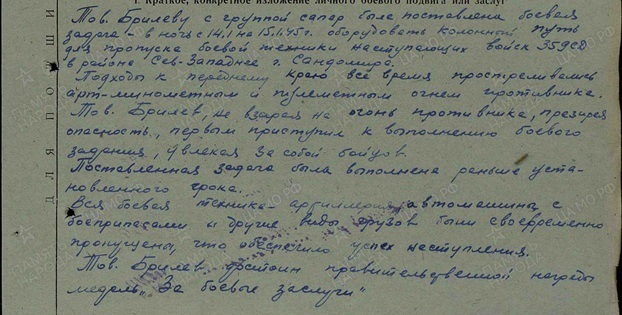 1. Краткое, конкретное изложение личного боевого подвига или заслуг
Тов. Брилеву с группой сапер была поставлена боевая
задача - в ночь с 14.1 на 15.1.45 г. оборудовать колонный путь
для пропуска боевой техники наступающих войск 359сд
в районе Сев-Западнее г. Сандомира.
Подходы к переднему краю всё время простреливались
арт-минометным и пулеметным огнем противника.
Тов. Брилев, не взирая на огонь противника, презирая
опасность, первым приступил к выполнению боевого
задания, увлекая за собой бойцов.
Поставленная задача была выполнена раньше уста-
новленного срока.
Вся боевая техника - артиллерия, автомашины с
боеприпасами и другие виды грузов были своевременно
пропущены, что обеспечило успех наступления.
Тов. Брилев достоин правительственной награды
медаль „За боевые заслуги"
ДЛЯ ПОДШИ